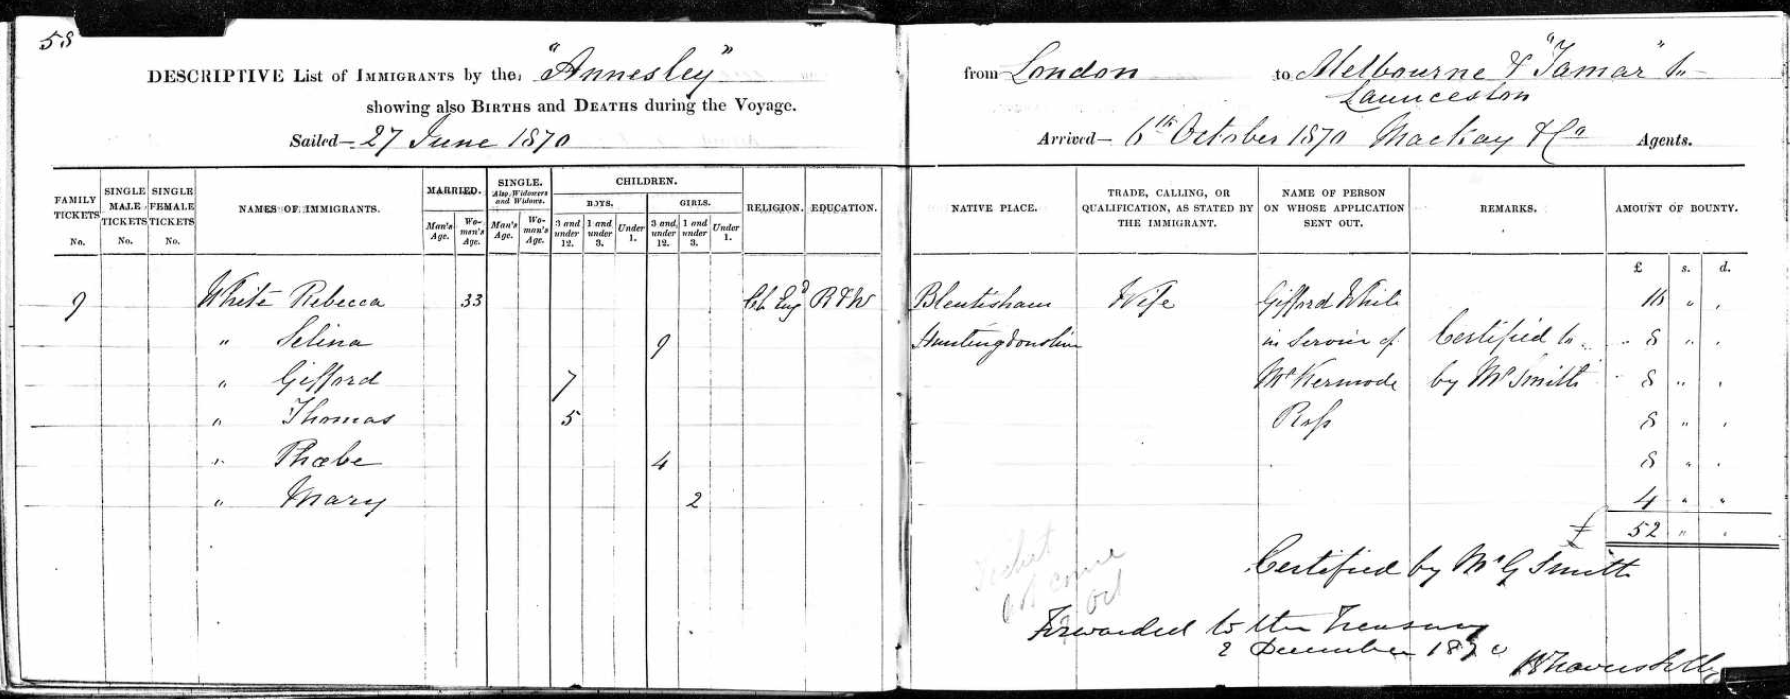 58
DESCRIPTIVE List of IMMIGRANTS by the "Annesley" from London to Melbourne & "Tamar" to
Launceston
showing also BIRTHS and DEATHS during the Voyage.
Sailed— 27 June 1870 Arrived— 6th October 1870 Mackay & Co Agents.
FAMILY TICKETS No. SINGLE MALE TICKETS No. SINGLE FEMALE TICKETS No. NAMES OF IMMIGRANTS. MARRIED. Man's Age. Wo-man's Age. SINGLE. Also, Widowers and Widows. Man's Age. Wo-man's Age. CHILDREN. BOYS. 3 and under 12. 1 and under 3. Under 1. GIRLS. 3 and under 12. 1 and under 3. Under 1. RELIGION. EDUCATION. NATIVE PLACE. TRADE, CALLING, OR QUALIFICATION, AS STATED BY THE IMMIGRANT. NAME OF PERSON ON WHOSE APPLICATION SENT OUT. REMARKS. AMOUNT OF BOUNTY.
£ s. d.
9 White Rebecca 33 Ch Engd R & W Bluntisham Wife Gifford White 16 " "
" Selina 9 Huntingdonshire in Service of Certified to 8 " "
" Gifford 7 Mr Kermode by Mr Smith 8 " "
" Thomas 5 Ross 8 " "
" Phœbe 4 8 " "
" Mary 2 4 " "
£ 52 " "
Certified by Mr G Smith
Ticket
come
Oct
Forwarded to the Treasury
2 December 1870